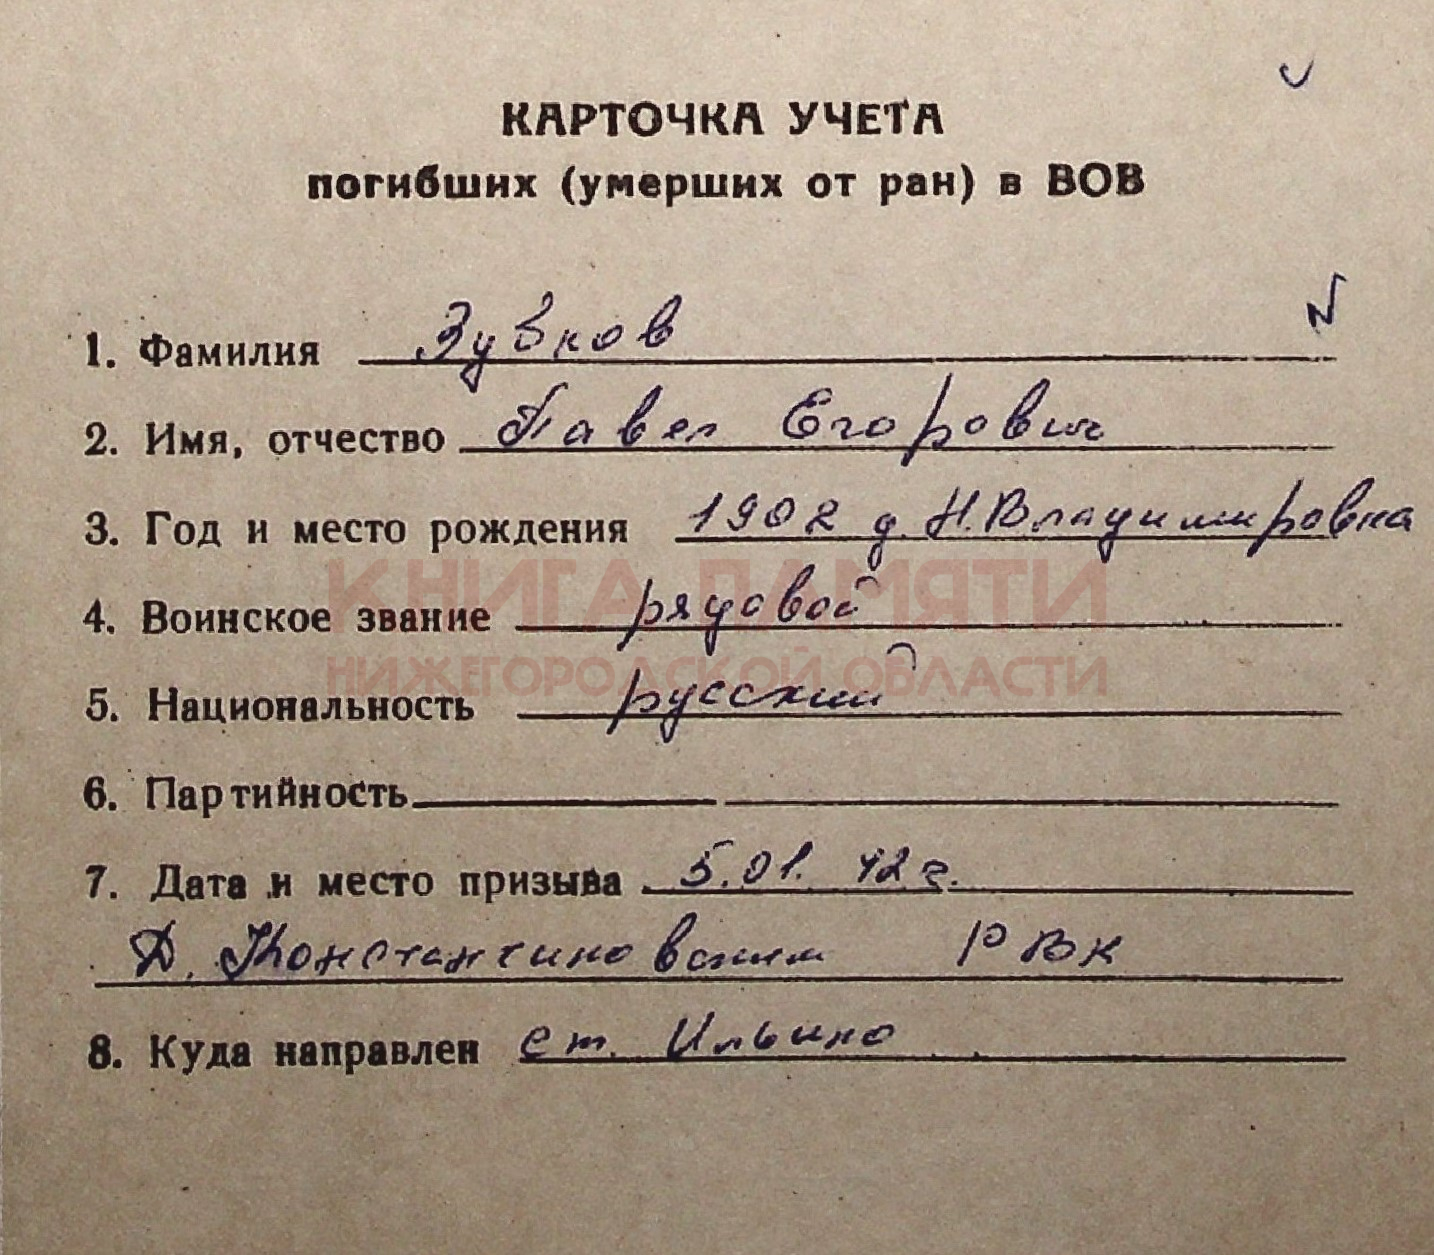 КАРТОЧКА УЧЕТА
погибших (умерших от ран) в ВОВ
1. Фамилия Зубков
2. Имя, отчество Павел Егорович
3. Год и место рождения 1902 д. Н.Владимировка
КНИГА ПАМЯТИ
4. Воинское звание рядовой
НИЖЕГОРОДСКОЙ ОБЛАСТИ
5. Национальность русский
6. Партийность
7. Дата и место призыва 5.01.42г.
Д. Константиновским РВК
8. Куда направлен ст. Ильино